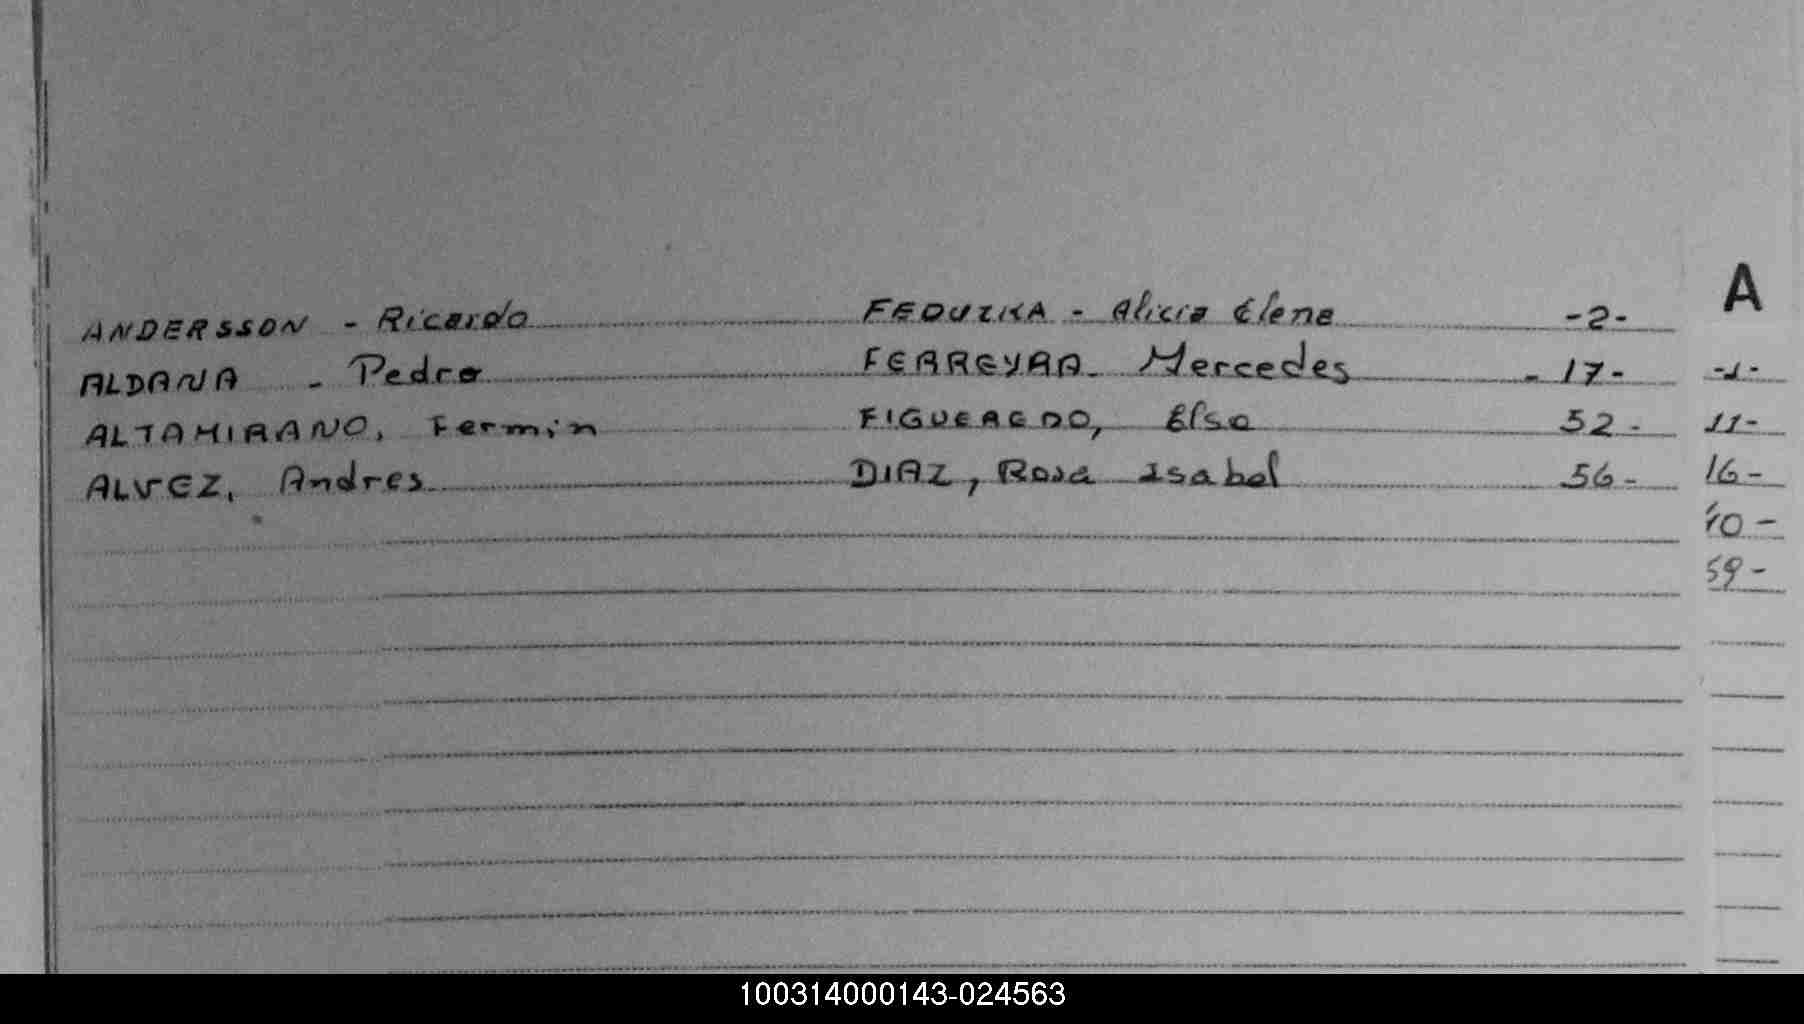 A
ANDERSSON - Ricardo FEDUZKA - Alicia Elena -2-
ALDANA - Pedro FERREYRA - Mercedes - 17 - -1-
ALTAMIRANO, Fermin FIGUEREDO, Elsa 52 - 11-
ALVEZ, Andres DIAZ, Rosa Isabel 56 - 16-
59-
100314000143-024563